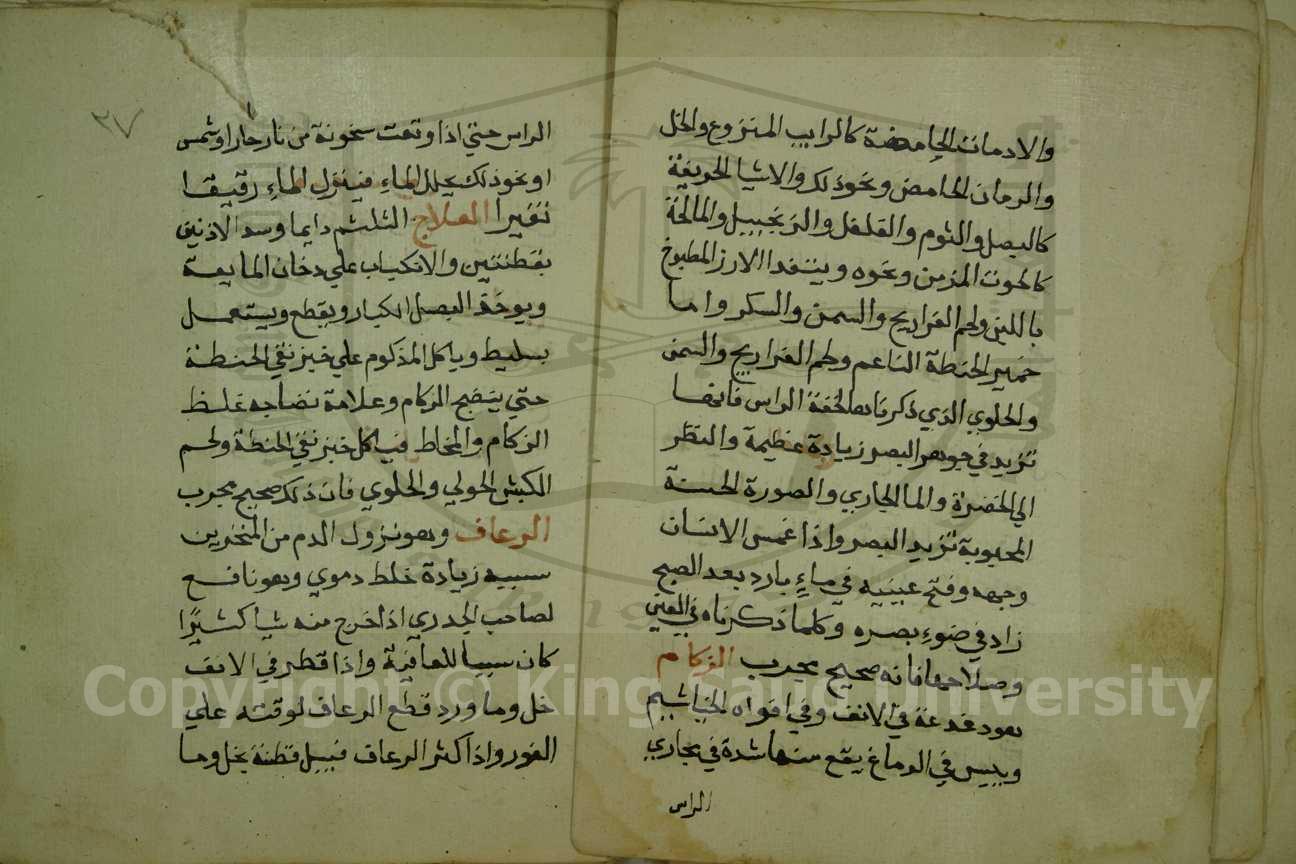 والادمانات الحامضة كالرايب المنزوع والخل
والرمان الحامض ونحو ذلك والاشيا الحريفة
كالبصل والثوم والفلفل والزنجبيل والمالحة
كالحوت المزمن ونحوه ويتغدا الارز المطبوخ
باللبن ولحم الفراريج والسمن والسكر واما
خمير الحنطة الناعم ولحم الفراريج والسمن
والحلوي الذي ذكرناها لخفة الراس فانها
تزيد في جوهر البصر زيادة عظيمة والنظر
الي الخضرة والما الجاري والصورة الحسنة
المحبوبة تزيد البصر واذا غمس الانسان
وجهه وفتح عينيه في ماءٍ بارد بعد الصبح
زاد في ضوءِ بصره وكلما ذكرناه في العين
وصلاحها فانه صحيح مجرب الزكام
هو في الانف وفي افواه الخياشيم
ويبس في الدماغ يقع منها شدة في مجاري
الراس
٢٧
الراس حتي اذا وقعت سخونة من نار حار او شمس
او نحو ذلك يحلل الماءِ فينزل الماءِ رقيقا
العلاج التلثم دايما وسد الاذنين
بقطنتين والانكباب علي دخان المايعة
ويوخذ البصل الكبار ويقطع ويستعمل
بسليط وياكل المذكوم علي خبز نقي الحنطة
حتي ينضج الزكام وعلامة نضاجه غلظ
الزكام والمخاط فياكل خبز نقي الحنطة ولحم
الكبش الحولي والحلوي فان ذلك صحيح مجرب
الرعاف وهو نزول الدم من المنخرين
سببه زيادة خلط دموي وهو نافع
لصاحب الجدري اذا خرج منه شيا كثيرًا
كان سببا للعافية واذا قطر في الانف
خل وما ورد قطع الرعاف لوقته علي
الفور واذا كثر الرعاف فيبل قطنة بخل وما
Copyright © King Saud University